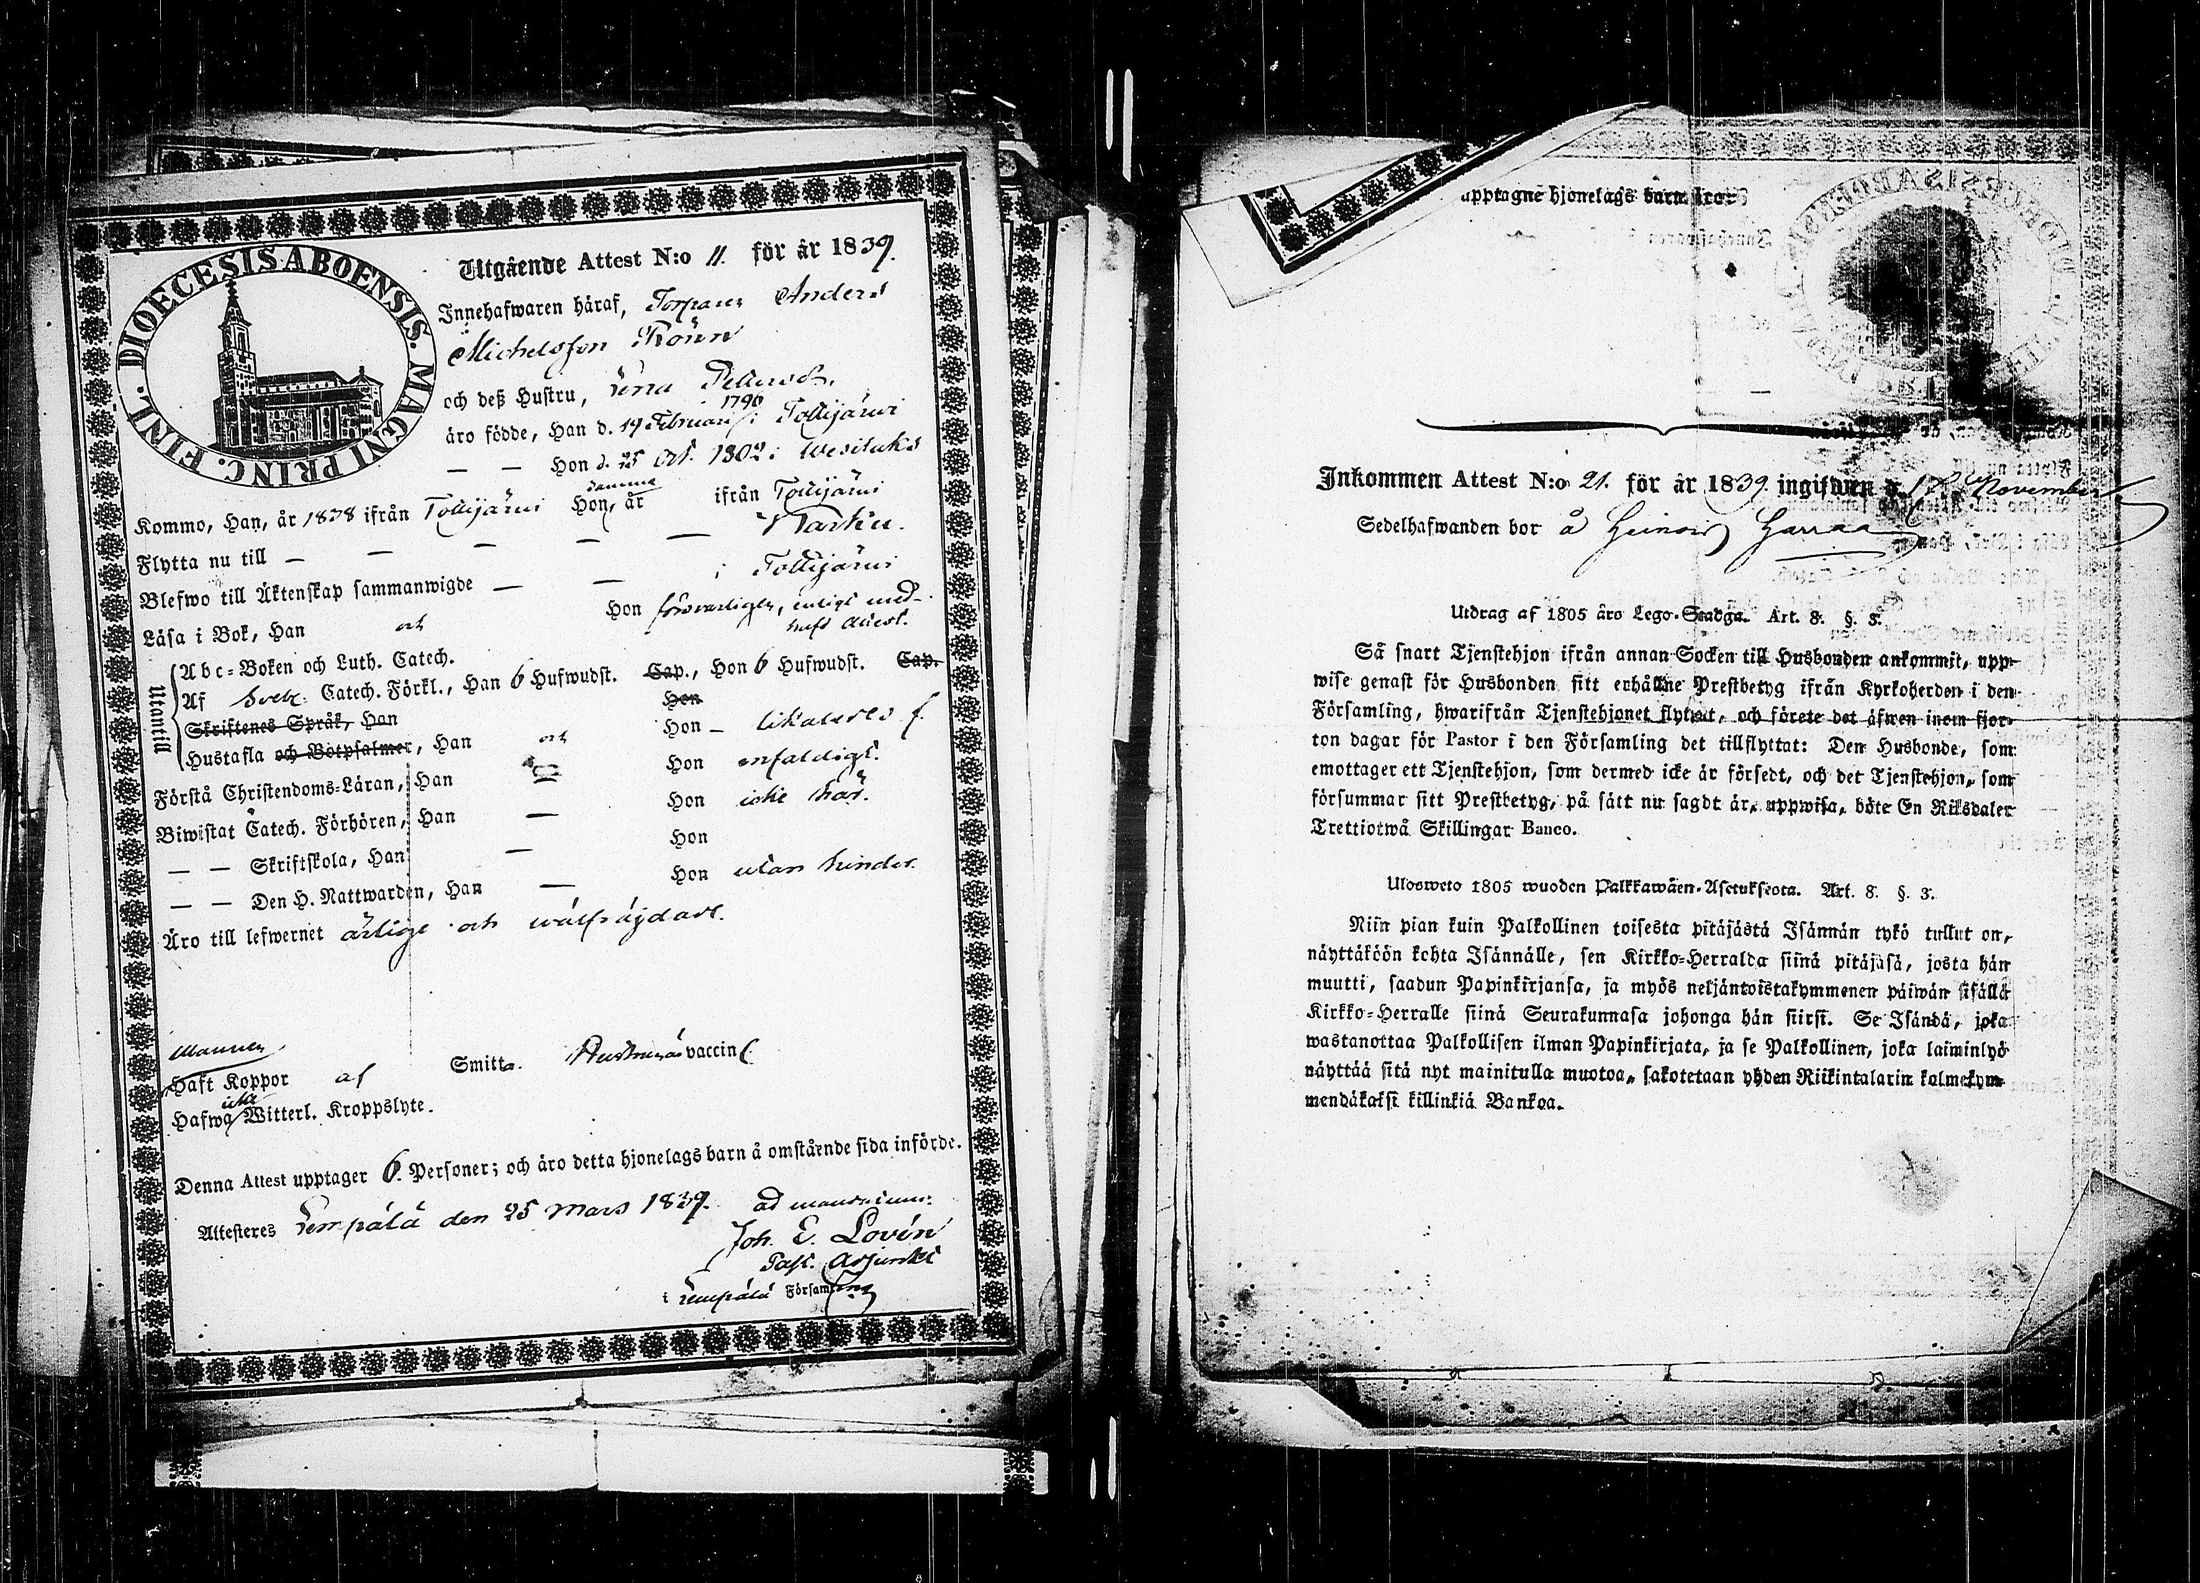 FINL. DIOECESIS ABOENSIS. MAGNI PRINC.
Utgående Attest N:o 11. för år 1839.
Innehafwaren häraf, Torparen Anders
Michelsson Rönn
och deß Hustru, Lena Pettersdr.
äro födde, Han d. 19 Februari 1790 i Tottijärvi
— — Hon d. 25 Oct. 1802 i Wesilaks
Kommo, Han, år 1838 ifrån Tottijärvi Hon, samma år ifrån Tottijärvi
Flytta nu till — — — — — Karku.
Blefwo till Äktenskap sammanwigde — — i Tottijärvi
Läsa i Bok, Han och Hon försvarligen, enligt med-
haft attest.
Utantill
Abc-Boken och Luth. Catech.
Af Sveb. Catech. Förkl., Han 6 Hufwudst. Cap., Hon 6 Hufwudst. Cap.
Skriftenes Språk, Han Hon
Hustafla och Botpsalmer, Han Hon — likaledes
Förstå Christendoms-Läran, Han och Hon enfaldigt.
Biwistat Catech. Förhören, Han Hon icke här.
— — Skriftskola, Han — Hon
— — Den H. Nattwarden, Han — Hon utan hinder.
Äro till lefwernet ärlige och wälfräjdade.
Mannen
Haft Koppor af Smitta. Hustrun vaccin
Hafwa icke Witterl. Kroppslyte.
Denna Attest upptager 6. Personer; och äro detta hjonelags barn å omstående sida införde.
Attesteres Lempälä den 25 Mars 1839. ad mandatum:
Joh. E. Lovén
Past. Adjunkt
i Lempälä Församling
upptagne hjonelags barn äro:
Inkommen Attest N:o 21. för år 1839. ingifwen d. November
Sedelhafwanden bor å Heinois Harraa
Utdrag af 1805 års Lego-Stadga. Art. 8. §. 3.
Så snart Tjenstehjon ifrån annan Socken till Husbonden ankommit, upp-
wise genast för Husbonden sitt erhållne Prestbetyg ifrån Kyrkoherden i den
Församling, hwarifrån Tjenstehjonet flyttat, och förete det äfwen inom fjor-
ton dagar för Pastor i den Församling det tillflyttat: Den Husbonde, som
emottager ett Tjenstehjon, som dermed icke är försedt, och det Tjenstehjon, som
försummar sitt Prestbetyg, på sätt nu sagdt är, uppwisa, böte En Riksdaler
Trettiotwå Skillingar Banco.
Ulosweto 1805 wuoden Palkkawäen-Asetuksesta. Art. 8. §. 3.
Niin pian kuin Palkollinen toisesta pitäjästä Isännän tykö tullut on,
näyttäköön kohta Isännälle, sen Kirkko-Herralda siinä pitäjäsä, josta hän
muutti, saadun Papinkirjansa, ja myös neljäntoistakymmenen päiwän sisällä
Kirkko-Herralle siinä Seurakunnasa johonga hän siirsi. Se Isändä, joka
wastanottaa Palkollisen ilman Papinkirjata, ja se Palkollinen, joka laiminlyö
näyttää sitä nyt mainitulla muotoa, sakotetaan yhden Riikintalarin kolmekym-
mendäkaksi killinkiä Bankoa.